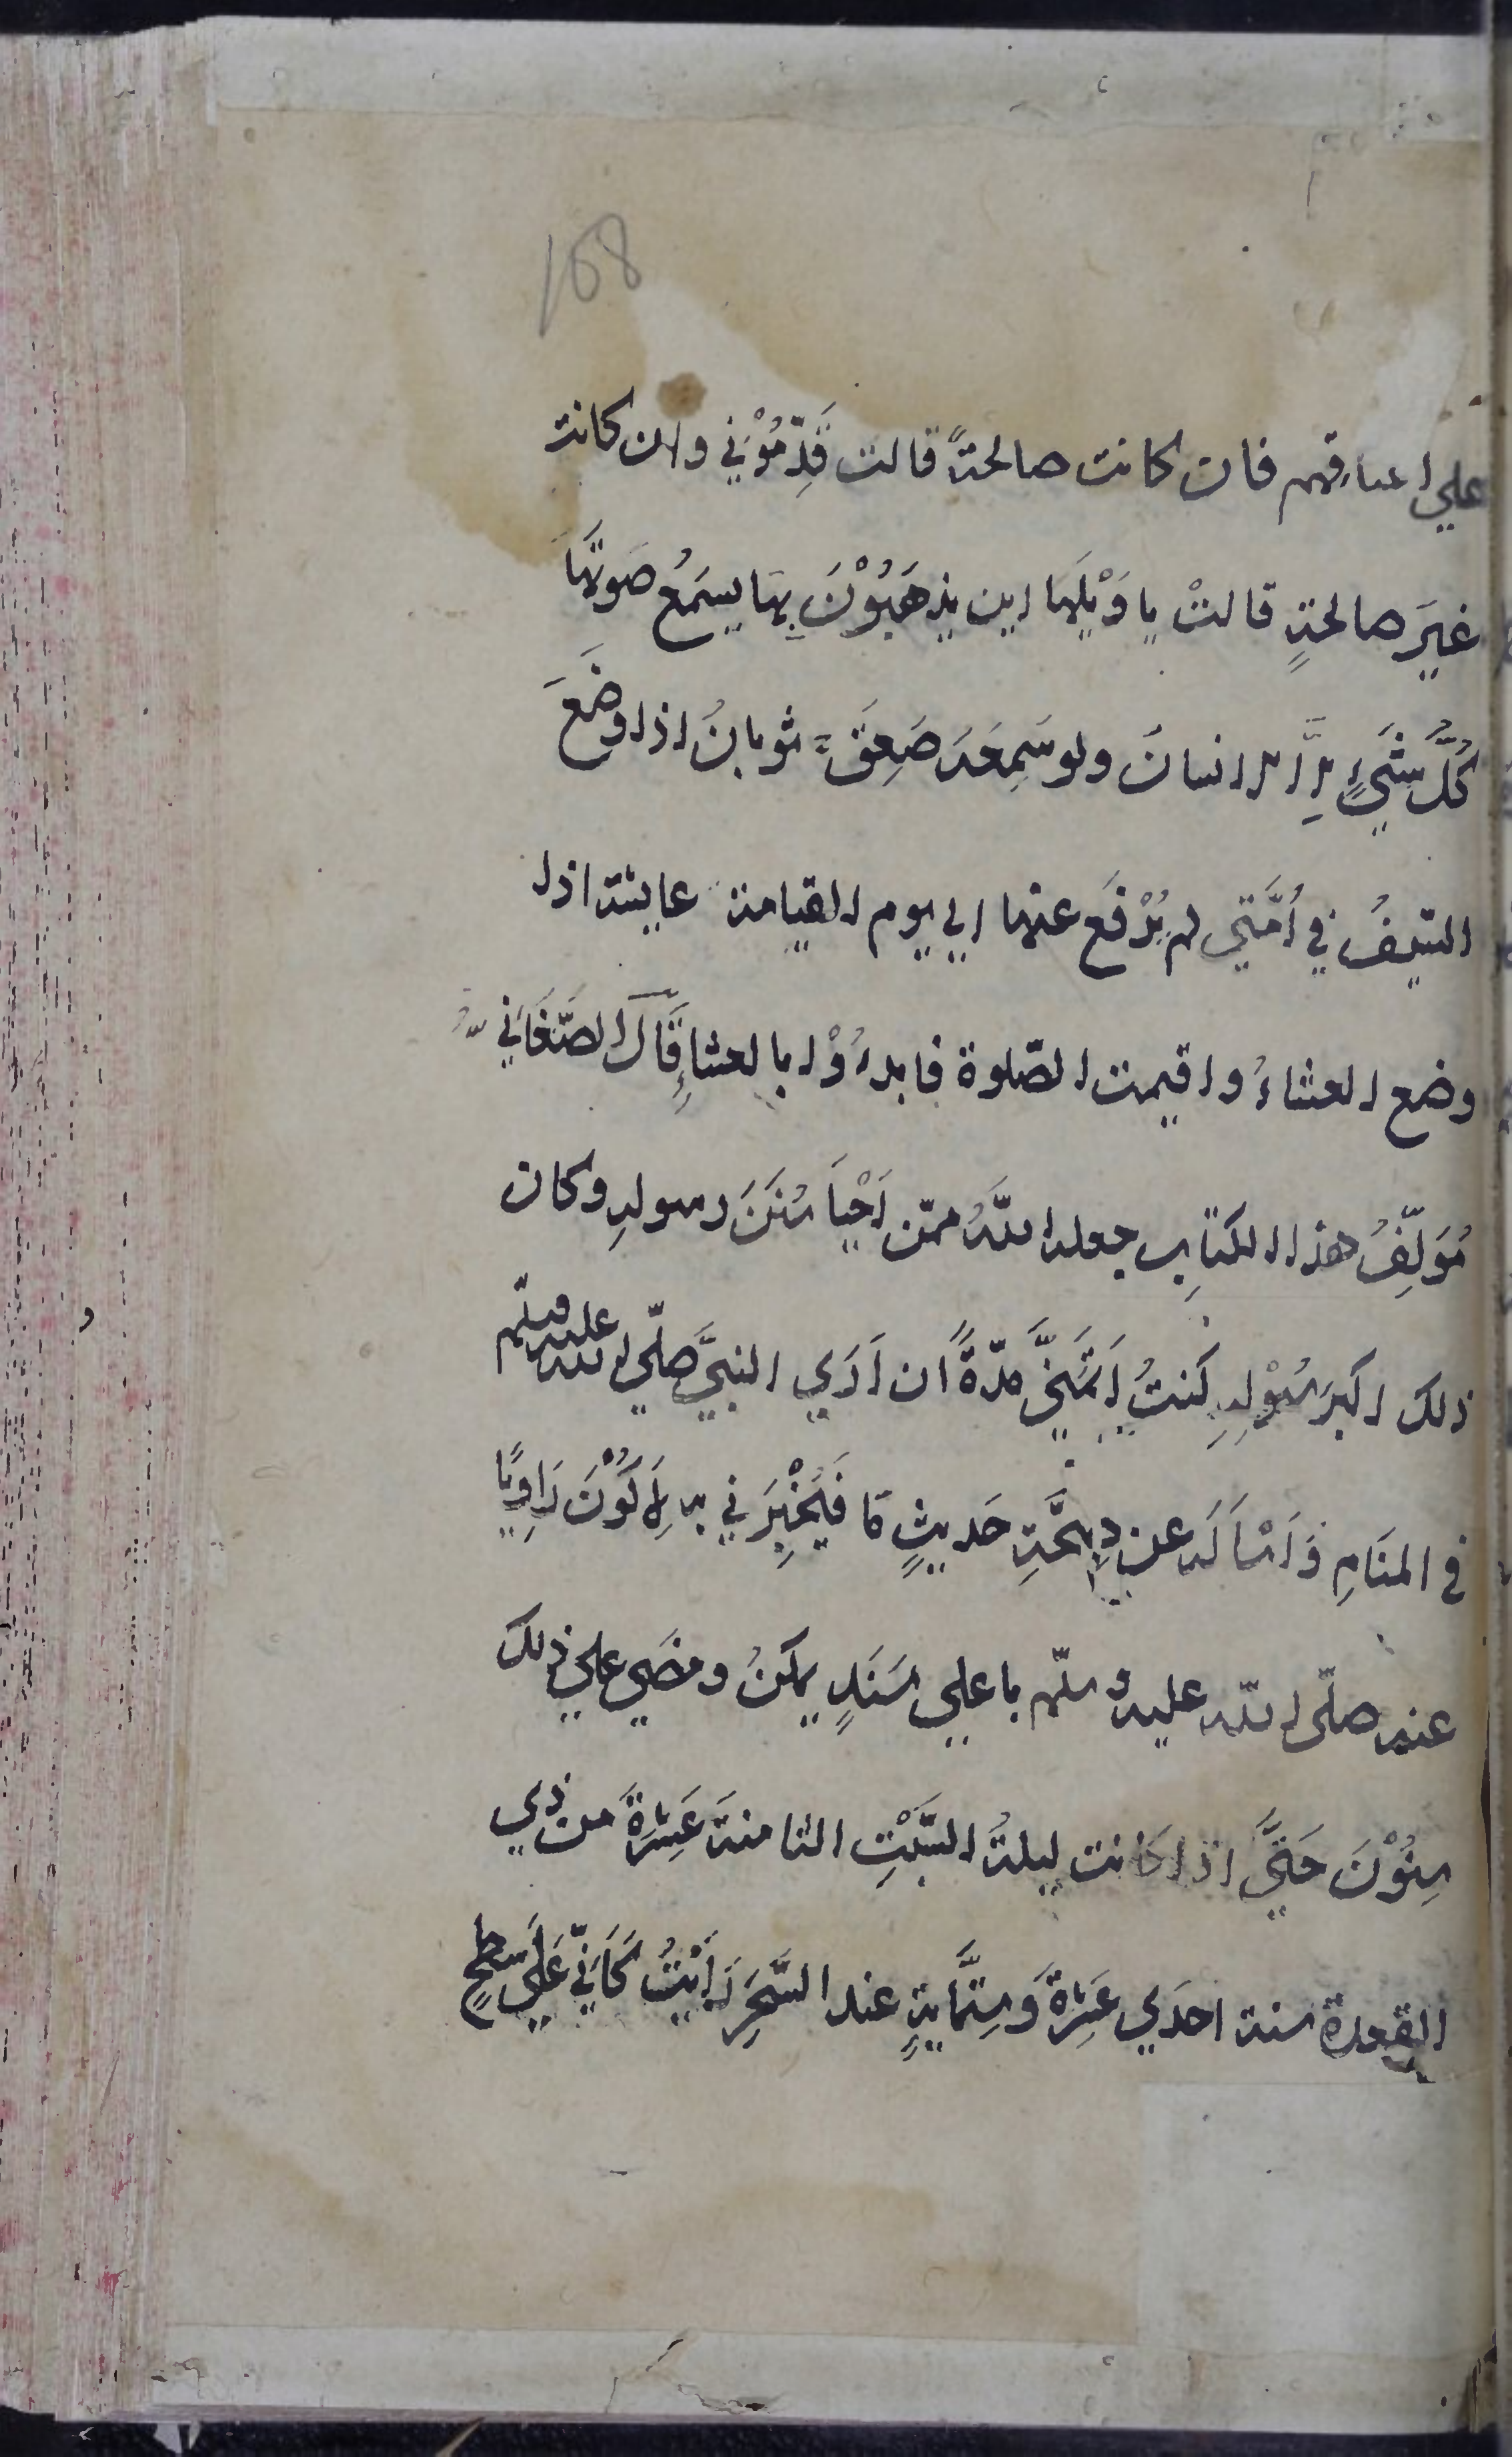 168
علي اعناقهم فان كانت صالحةً قالت قَدِّمُوْنِي وان كانت
غيرَ صالحةٍ قالتْ يا وَيْلَها اين يذهَبُوْنَ بِها يسمَعُ صَوتَها
كُلُّ شَيْءٍ اِلَّا الانسانَ ولو سَمِعَهُ صَعِقَ ثوبانُ اذا وُضِعَ
السّيفُ في اُمَّتي لم يُرْفَع عنها الي يوم القيامة عايشة اذا
وضع العشاءُ واقيمت الصّلوة فابدءُوْا بالعشاءِ قَالَ الصَّغَانِي
مُؤلِّفُ هذا الكتابِ جعله اللهُ ممّن اَحْيَا سُنَنَ رسولهِ وكان
ذلك اكبرَ سُؤْلِهِ كنتُ اَتَمَنَّي مدّةً ان اَرَي النبيَّ صلّي الله عليه وسلّم
في المنَامِ وَاَسْاَلَه عن صِحَّةِ حَديثٍ مَا فَيُخْبِرَنِي به لِاَكُوْنَ رَاوِيًا
عنه صلّي الله عليه وسلّم باعلي سَنَدٍ يمكنُ ومضَي علي ذلك
سِنُوْنَ حَتَّي اذا كانت ليلةُ السَّبْتِ الثامنةَ عَشِرَةَ من ذي
القعدة سنة احدَي عَشِرَةَ وَسِتّمَايةٍ عند السَّحَرِ رَاَيْتُ كَاَنّي عَلَي سَطحٍ